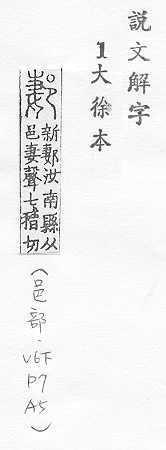 说文解字
1大徐本
郪
新郪汝南縣从
邑妻聲七稽切
(邑部.V6下
P7
A5)